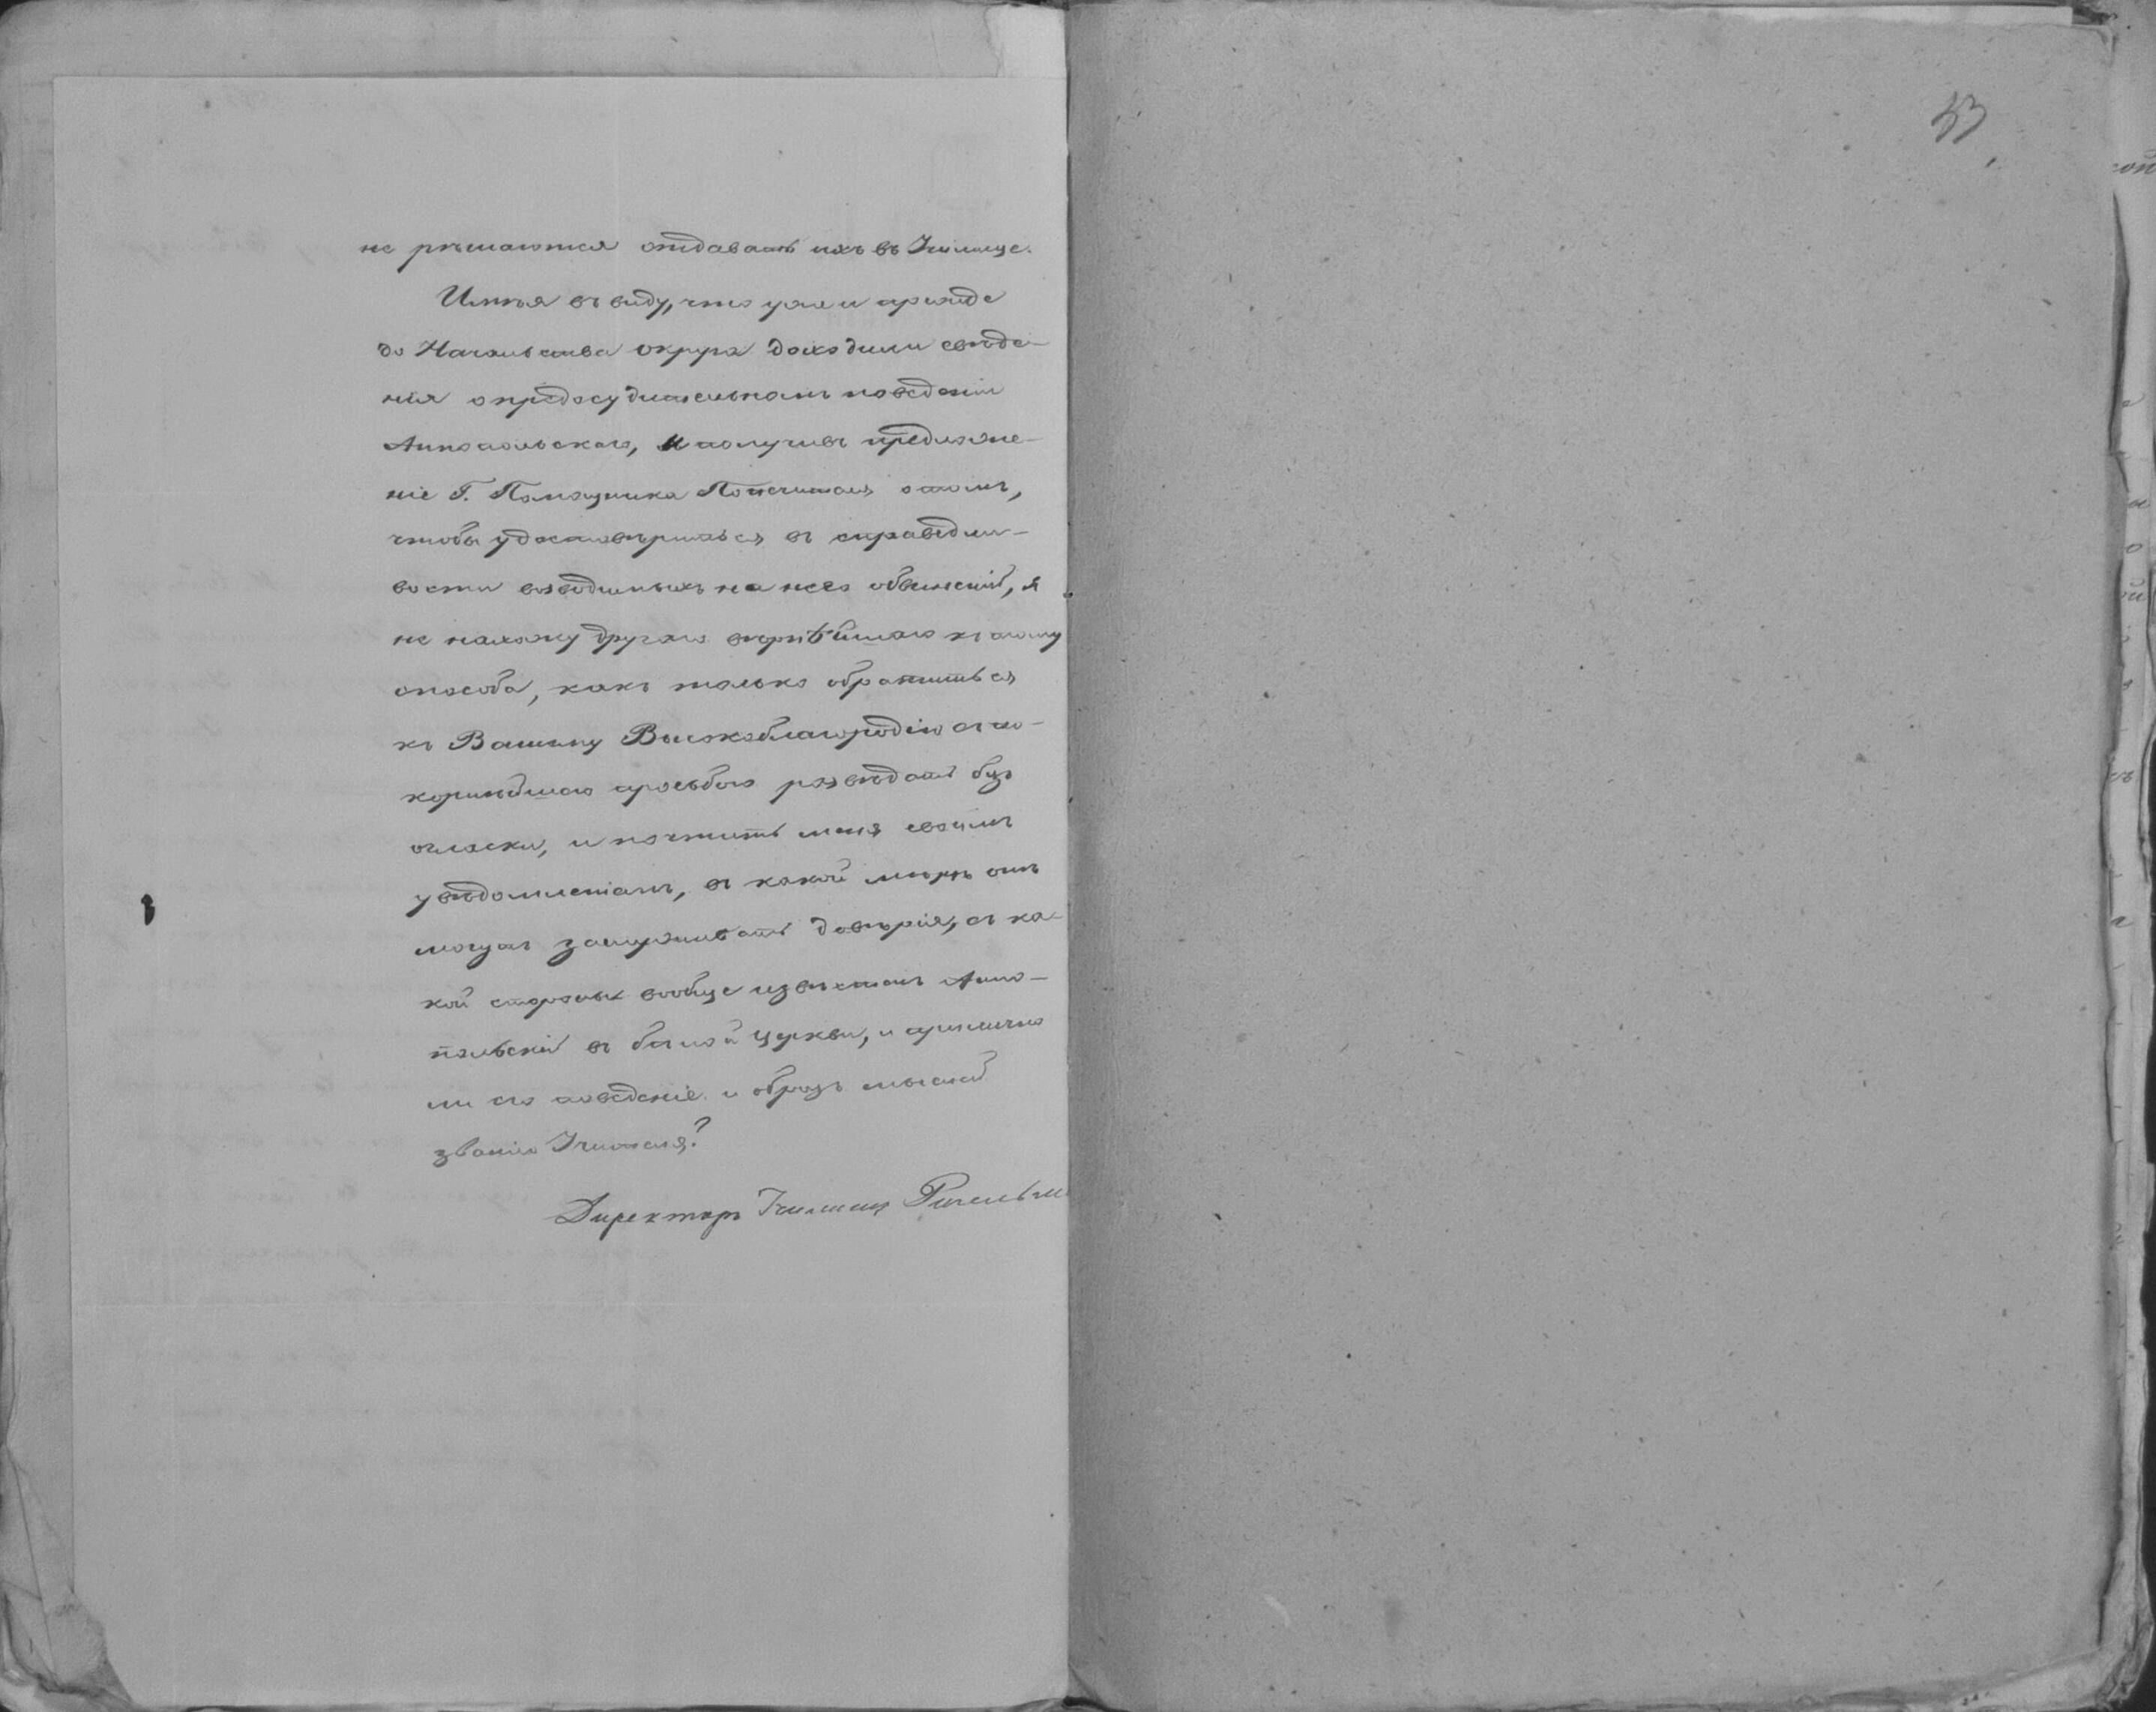 53
не рѣшаются отдавать ихъ въ Училище.
Имѣя въ виду, что уже и прежде
до Начальства округа доходили свѣдѣ-
нія о предосудительномъ поведеніи
Аннопольскаго, и получивъ предложе-
ніе Г. Помощника Попечителя о томъ,
чтобы удостовѣриться въ справедли-
вости возводимыхъ на него обвиненій, я
не нахожу другаго вѣрнѣйшаго къ тому
способа, какъ только обратиться
къ Вашему Высокоблагородію съ по-
корнѣйшею просьбою развѣдать безъ
огласки, и почтить меня своимъ
увѣдомленіемъ, въ какой мѣрѣ онѣ
могутъ заслуживать довѣрія, съ ка-
кой стороны вообще извѣстенъ Анно-
польскій въ бѣлой церкви, и прилично
ли его поведеніе и образъ мыслей
званію Учителя?
Директоръ Училищъ